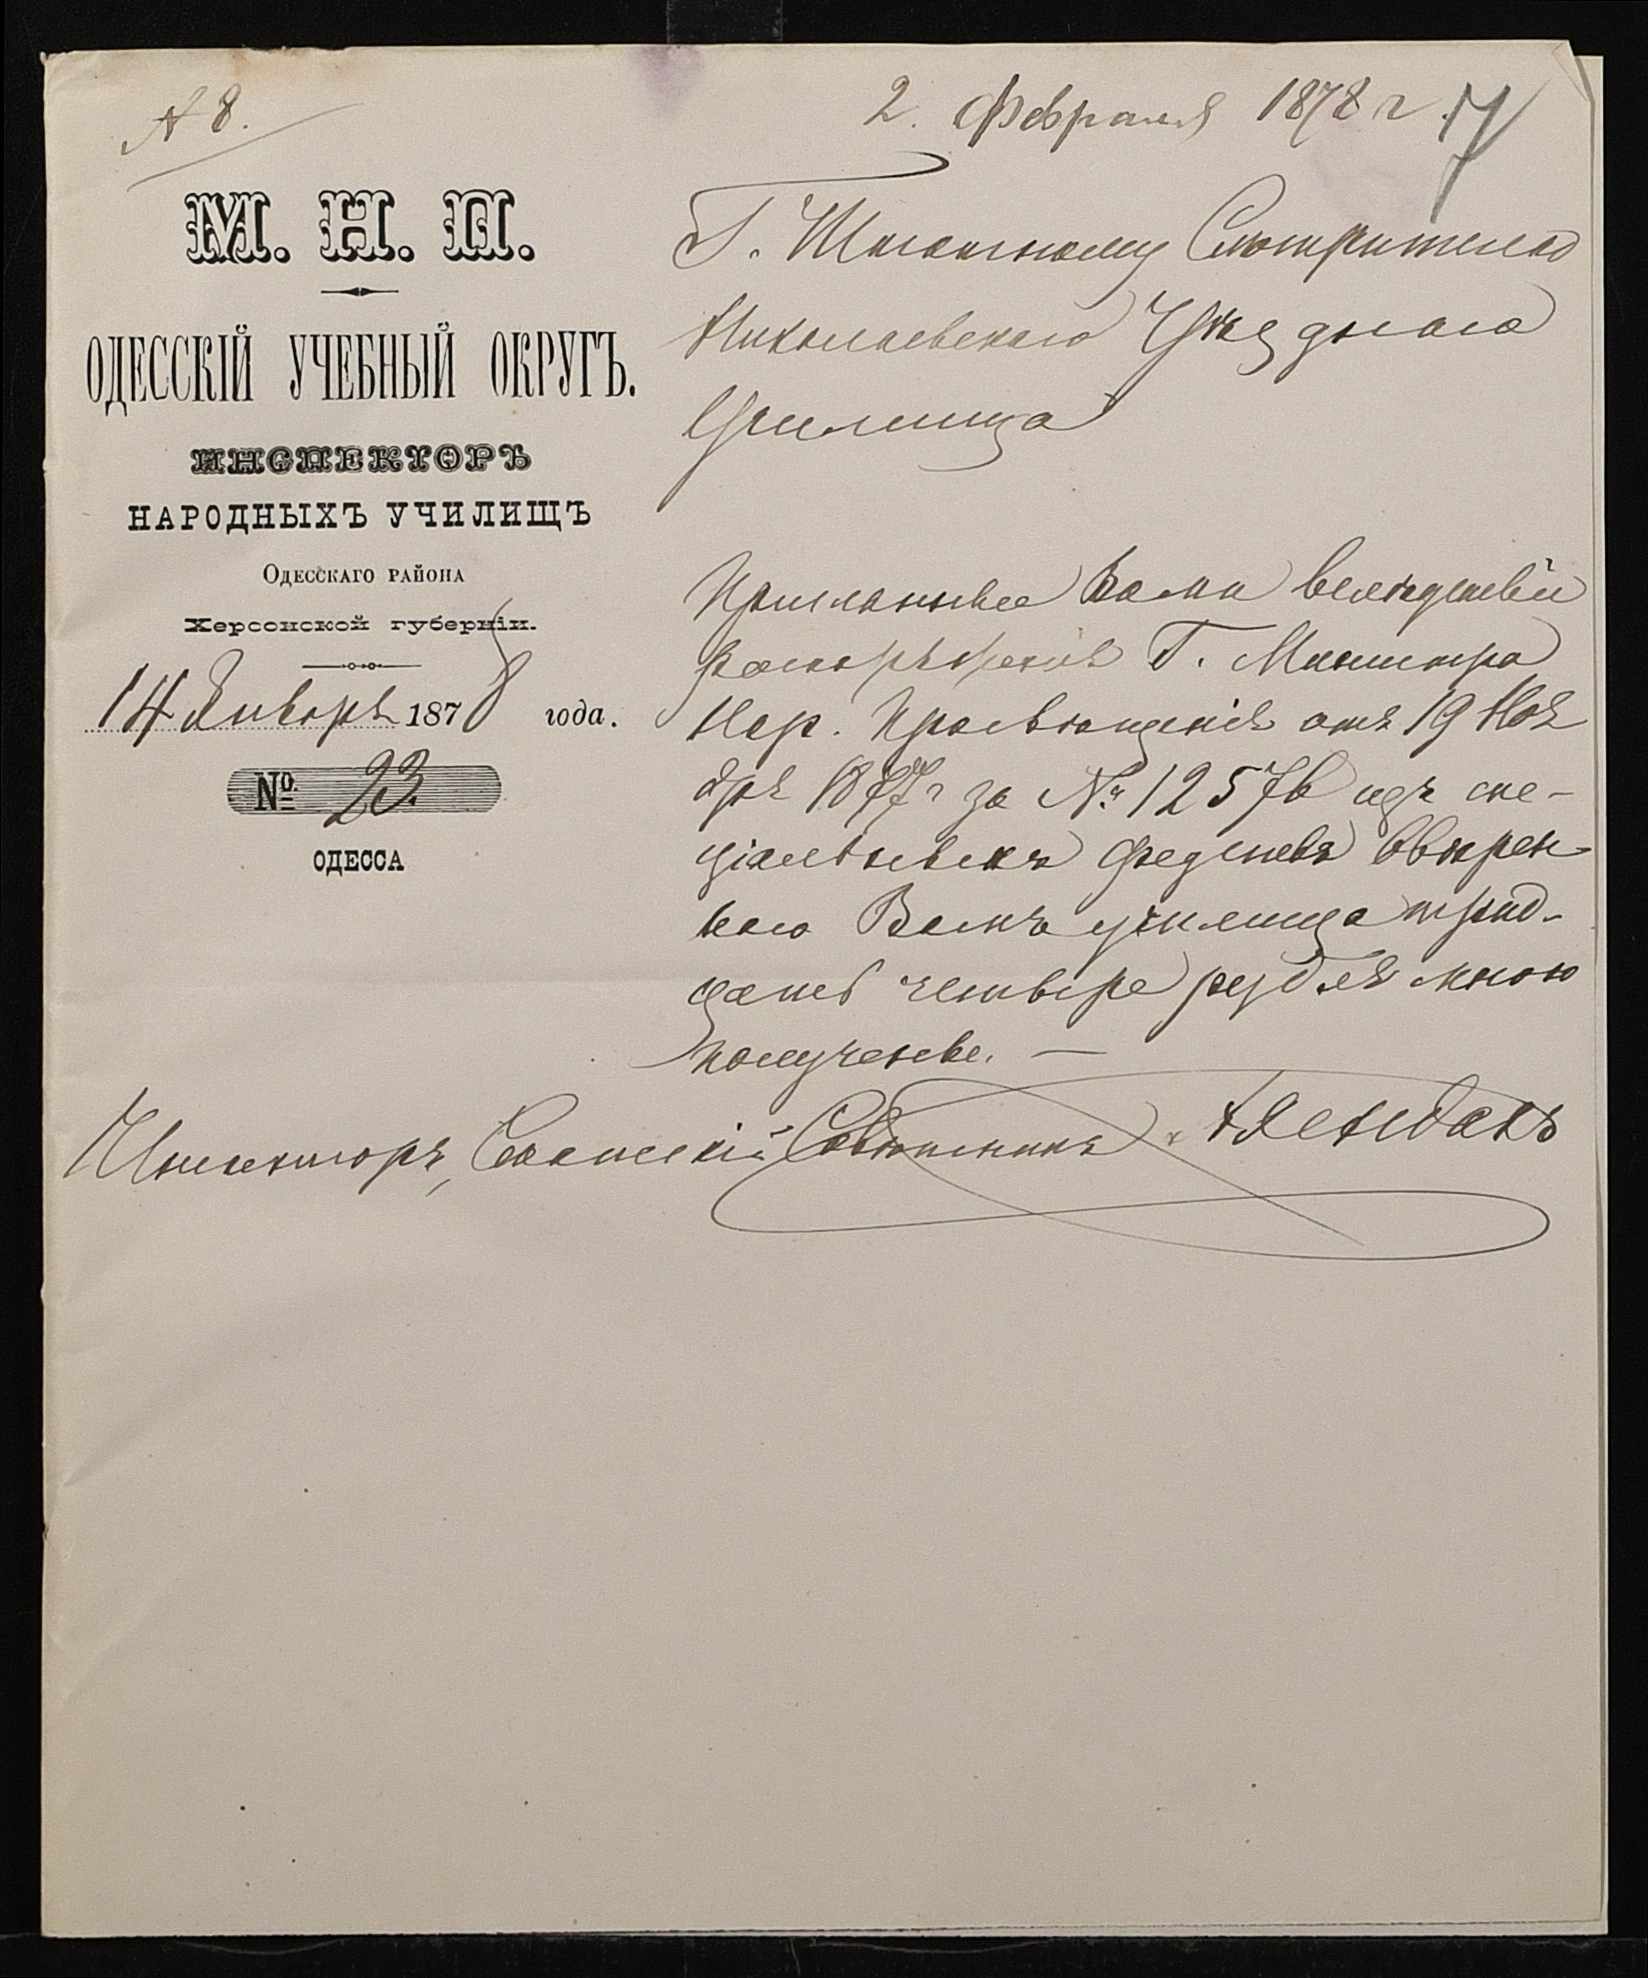 № 8.
2. Февраля 1878 г.
17
М. Н. П.
ОДЕССКІЙ УЧЕБНЫЙ ОКРУГЪ.
ИНСПЕКТОРЪ
НАРОДНЫХЪ УЧИЛИЩЪ
ОДЕССКАГО РАЙОНА
Херсонской губерніи.
14 Января 1878 года.
№ 23.
ОДЕССА
Г. Штатному Смотрителю
Николаевскаго Уѣзднаго
Училища
Присланные Вами вслѣдствіи
распоряженія Г. Министра
Нар. Просвѣщенія отъ 19 Ноя
бря 1877 г за № 12576 изъ спе-
ціальныхъ средствъ ввѣрен
наго Вамъ училища трид-
цать четыре рубля мною
получены. —
Инспекторъ, Статскій Совѣтникъ